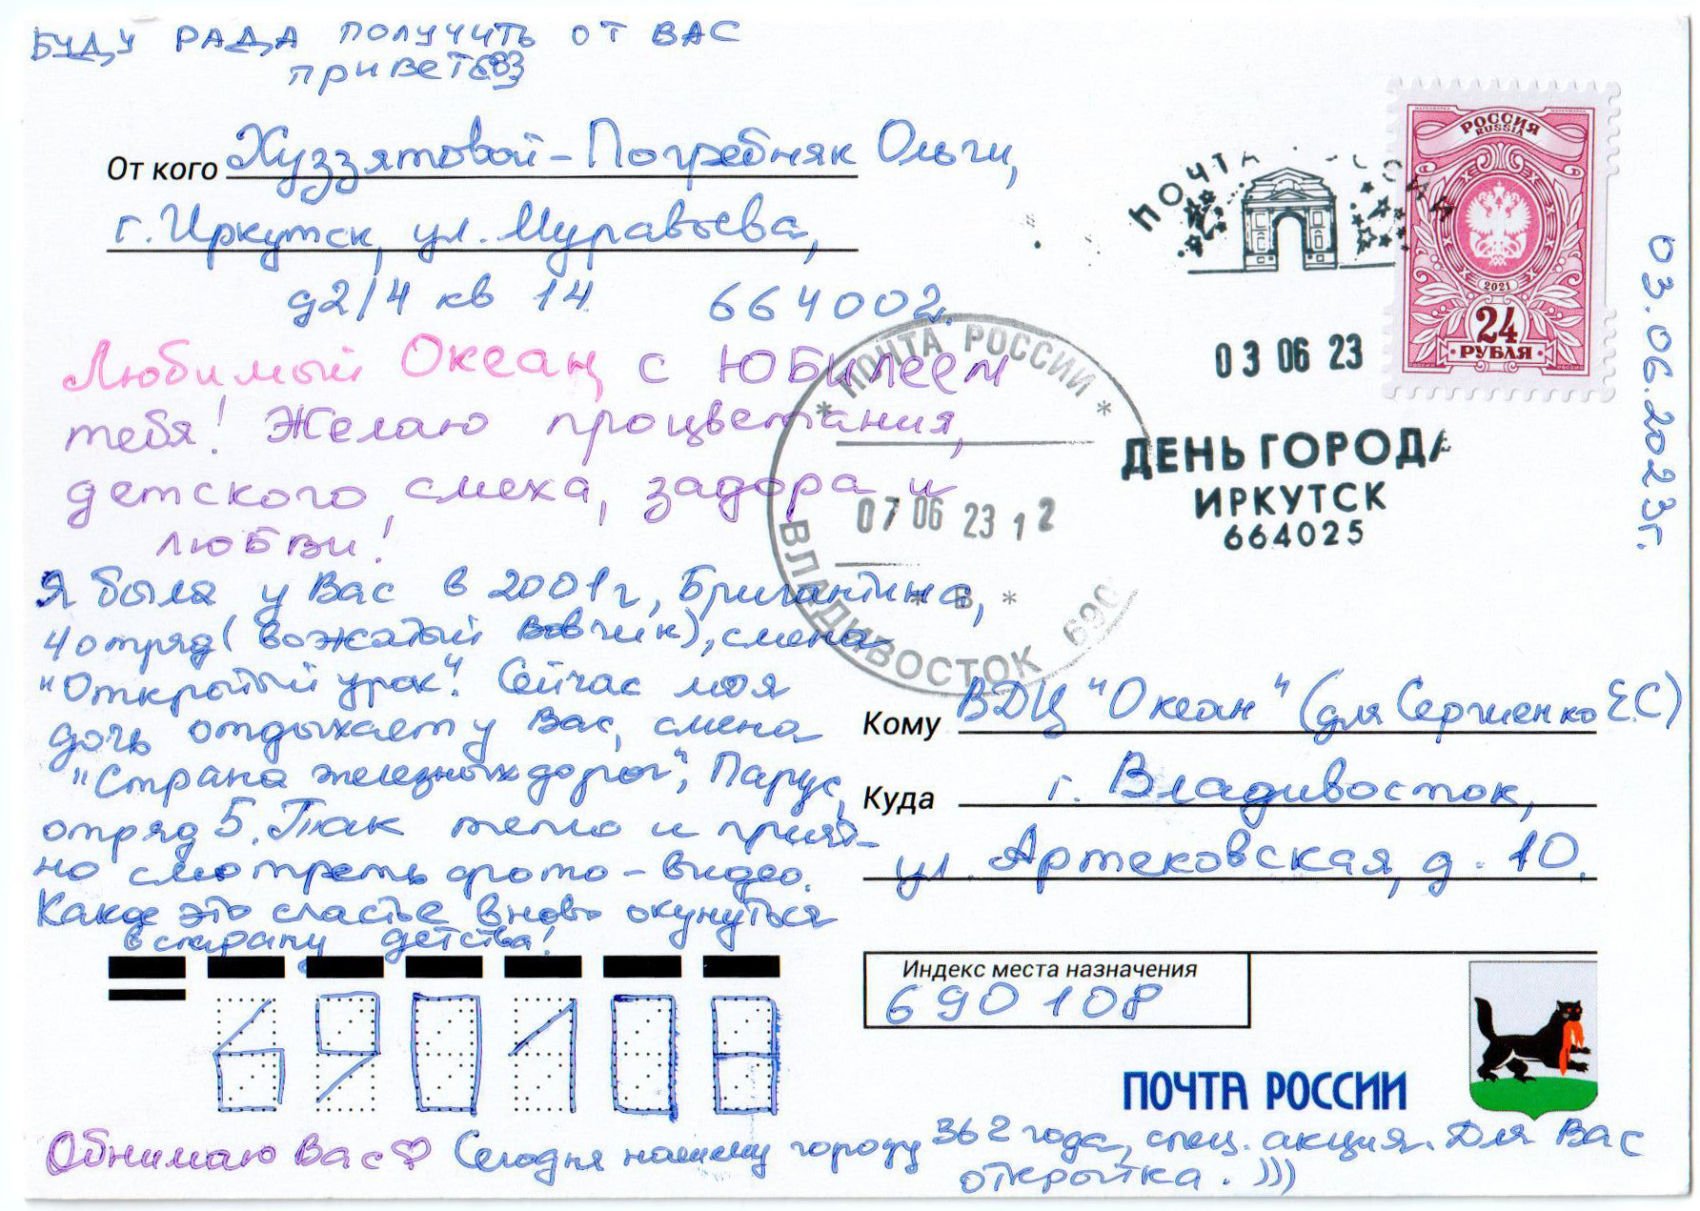 БУДУ РАДА ПОЛУЧИТЬ ОТ ВАС
ПРИВЕТ
От кого Хуззятовой-Погребняк Ольги,
г. Иркутск, ул. Муравьева,
д2/4 кв 14 664002.
Любимый Океан, с Юбилеем
тебя! Желаю процветания,
детского смеха, задора и
любви!
Я была у Вас в 2001г, Бригантина,
4 отряд (вожатый Вовчик), смена
"Открытый урок". Сейчас моя
дочь отдыхает у Вас, смена
"Страна железных дорог", Парус,
отряд 5. Так тепло и прият-
но смотреть фото-видео.
Какое это счастье вновь окунуться
в страну детства!
ПОЧТА РОССИИ
03 06 23
ДЕНЬ ГОРОДА
ИРКУТСК
664025
РОССИЯ
RUSSIA
2021
24
РУБЛЯ
03.06.2023г.
* ПОЧТА РОССИИ *
07 06 23 12
* В *
ВЛАДИВОСТОК 690
Кому ВДЦ "Океан" (для Сергиенко Е.С)
Куда г. Владивосток,
ул. Артековская, д. 10.
Индекс места назначения
690108
690108
ПОЧТА РОССИИ
Обнимаю Вас♡ Сегодня нашему городу 362 года, спец. акция. Для Вас
открытка. )))